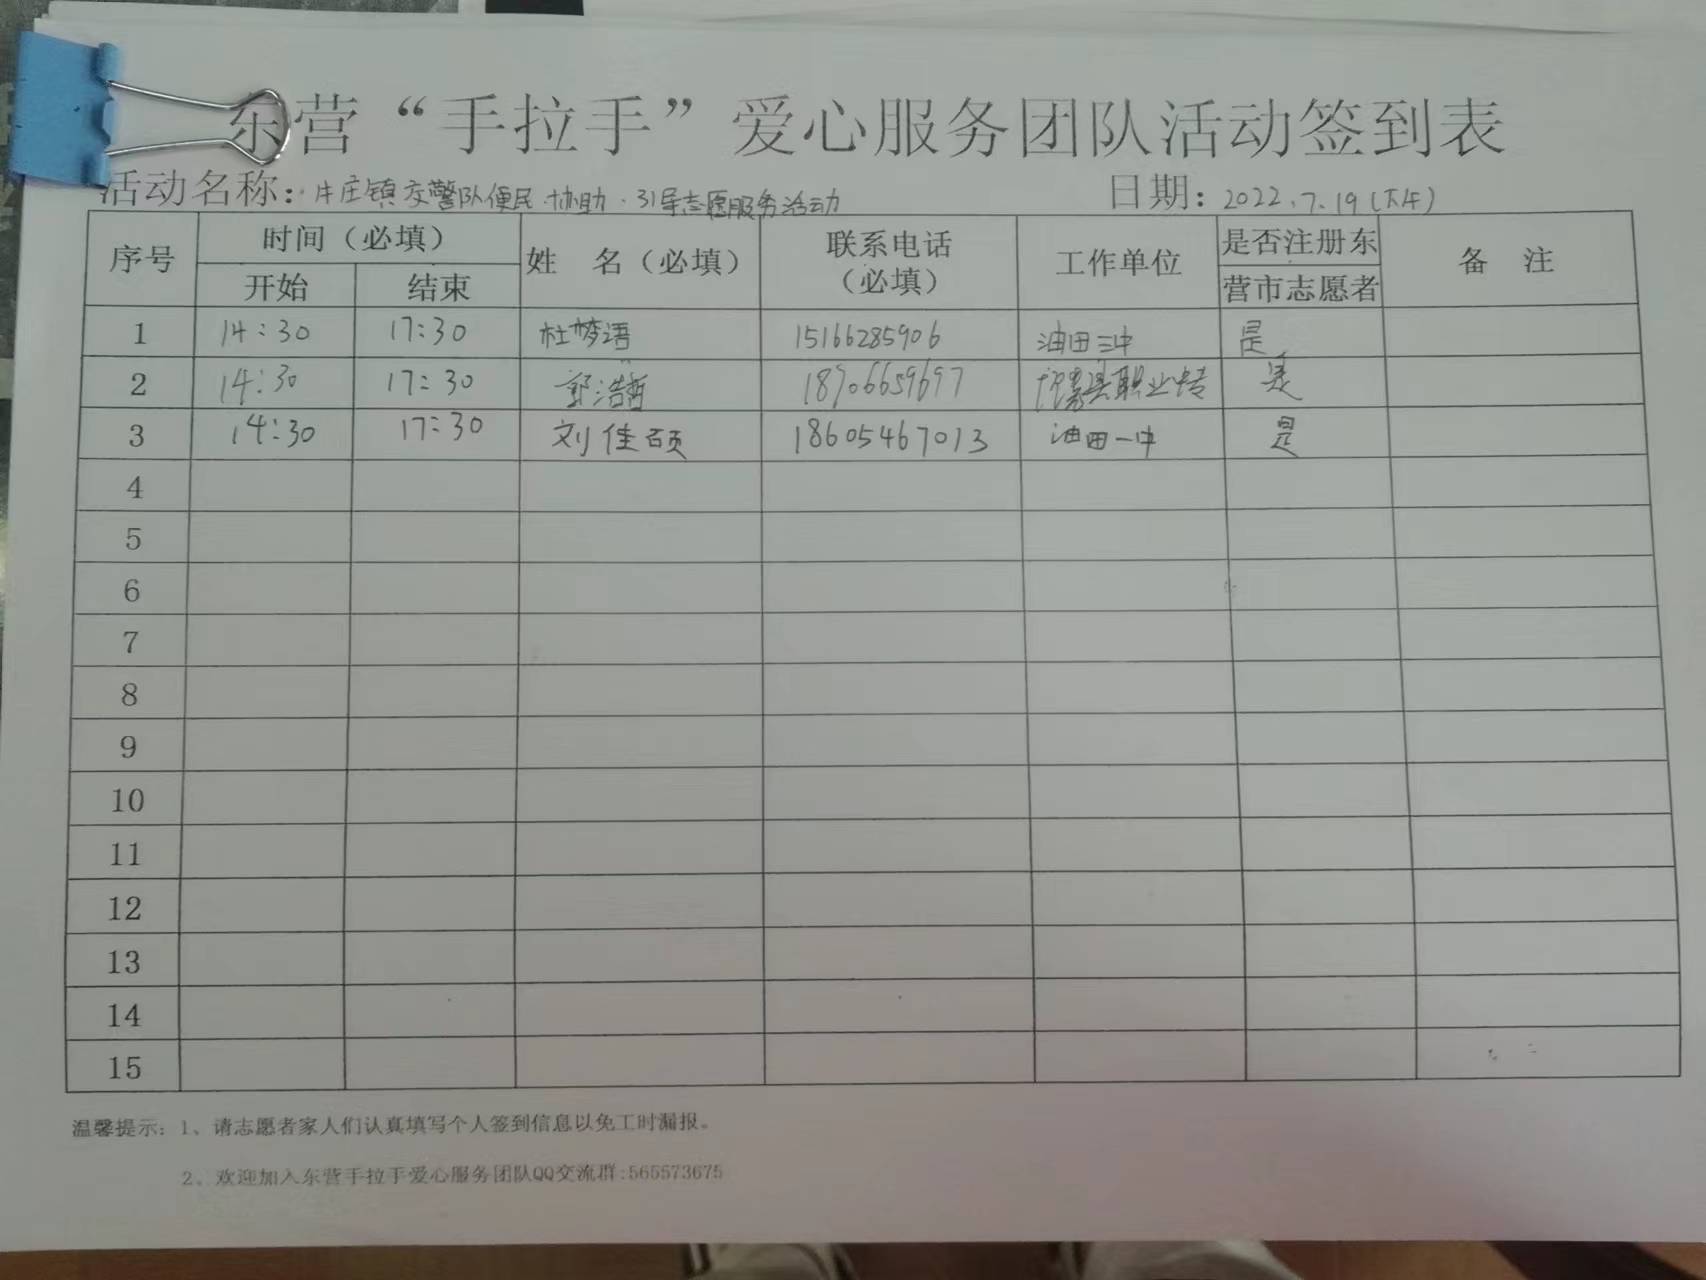 东营“手拉手”爱心服务团队活动签到表
活动名称：牛庄镇交警队便民.协助.引导志愿服务活动 日期：2022.7.19(下午)
序号 时间（必填） 姓 名（必填） 联系电话（必填） 工作单位 是否注册东营市志愿者 备 注
开始 结束
1 14:30 17:30 杜梦语 15166285906 油田三中 是
2 14:30 17:30 郭浩哲 18906659697 县职业中专 是
3 14:30 17:30 刘佳硕 18605467013 油田一中 是
4
5
6
7
8
9
10
11
12
13
14
15
温馨提示：1、请志愿者家人们认真填写个人签到信息以免工时漏报。
2、欢迎加入东营手拉手爱心服务团队QQ交流群:565573675